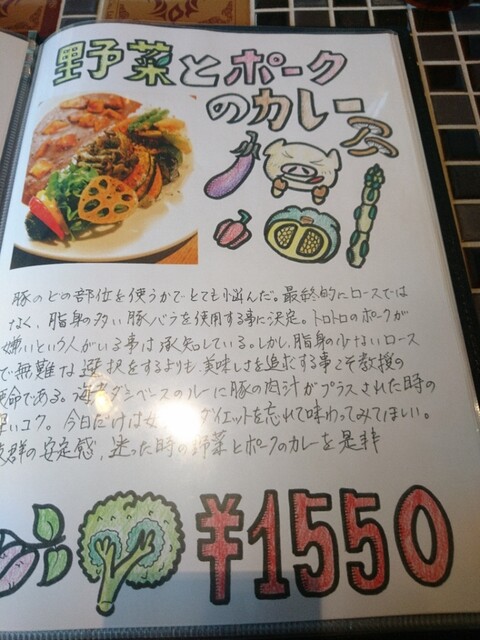 野菜とポーク
のカレー
豚のどの部位を使うかでとても悩んだ。最終的にロースでは
なく、脂身の多い豚バラを使用する事に決定。トロトロのポークが
嫌いという人がいる事は承知している。しかし、脂身の少ないロース
で無難な選択をするよりも、美味しさを追求する事こそ教授の
使命である。海老ダシベースのルーに豚の肉汁がプラスされた時の
深いコク。今日だけは ダイエットを忘れて味わってみてほしい。
抜群の安定感、迷った時の野菜とポークのカレーを是非
¥1550